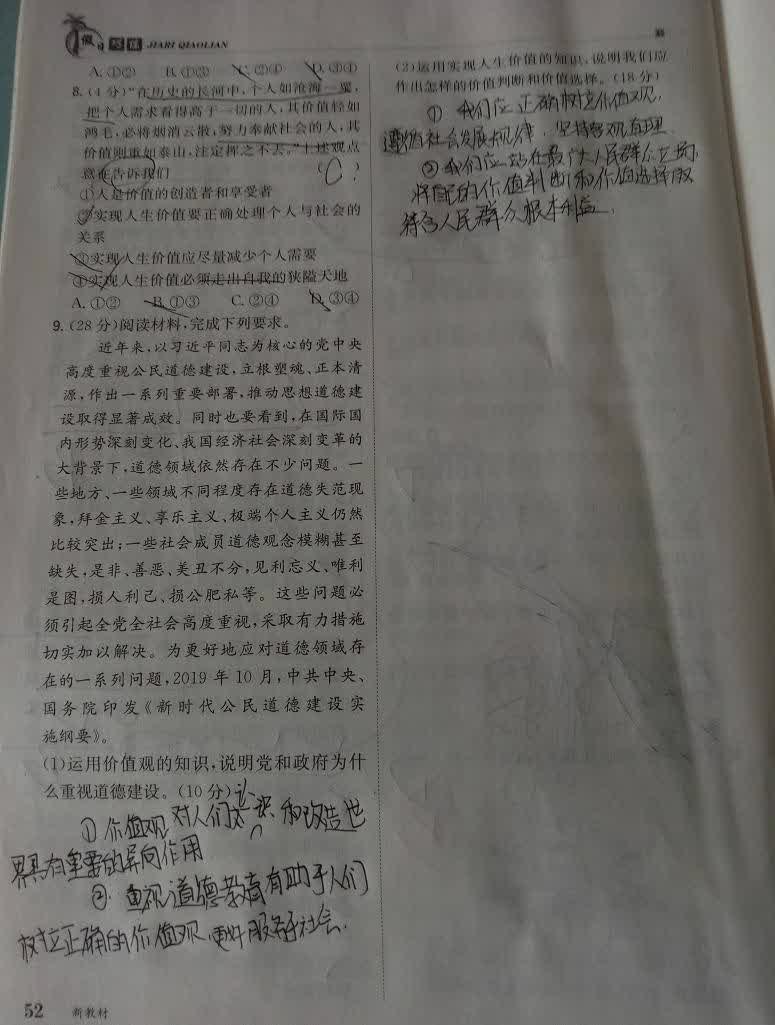 假日巧练 JIARI QIAOLIAN
A.①② B.①③ C.②④ D.③④
8.(4分)“在历史的长河中,个人如沧海一粟,
把个人需求看得高于一切的人,其价值轻如
鸿毛,必将烟消云散,努力奉献社会的人,其
价值则重如泰山,注定挥之不去。”上述观点
意在告诉我们 (C)?
①人是价值的创造者和享受者
②实现人生价值要正确处理个人与社会的
关系
③实现人生价值应尽量减少个人需要
④实现人生价值必须走出自我的狭隘天地
A.①② B.①③ C.②④ D.③④
9.(28分)阅读材料,完成下列要求。
近年来,以习近平同志为核心的党中央
高度重视公民道德建设,立根塑魂、正本清
源,作出一系列重要部署,推动思想道德建
设取得显著成效。同时也要看到,在国际国
内形势深刻变化、我国经济社会深刻变革的
大背景下,道德领域依然存在不少问题。一
些地方、一些领域不同程度存在道德失范现
象,拜金主义、享乐主义、极端个人主义仍然
比较突出;一些社会成员道德观念模糊甚至
缺失,是非、善恶、美丑不分,见利忘义、唯利
是图,损人利己、损公肥私等。这些问题必
须引起全党全社会高度重视,采取有力措施
切实加以解决。为更好地应对道德领域存
在的一系列问题,2019年10月,中共中央、
国务院印发《新时代公民道德建设实
施纲要》。
(1)运用价值观的知识,说明党和政府为什
么重视道德建设。(10分)
①价值观对人们认识和改造世
界具有重要的导向作用
②重视道德教育有助于人们
树立正确的价值观,更好服务于社会.
(2)运用实现人生价值的知识,说明我们应
作出怎样的价值判断和价值选择。(18分)
①我们应正确树立价值观,
遵循社会发展规律,坚持客观真理
②我们应站在最广大人民群众立场,
将自己的价值判断和价值选择
符合人民群众根本利益.
52 新教材